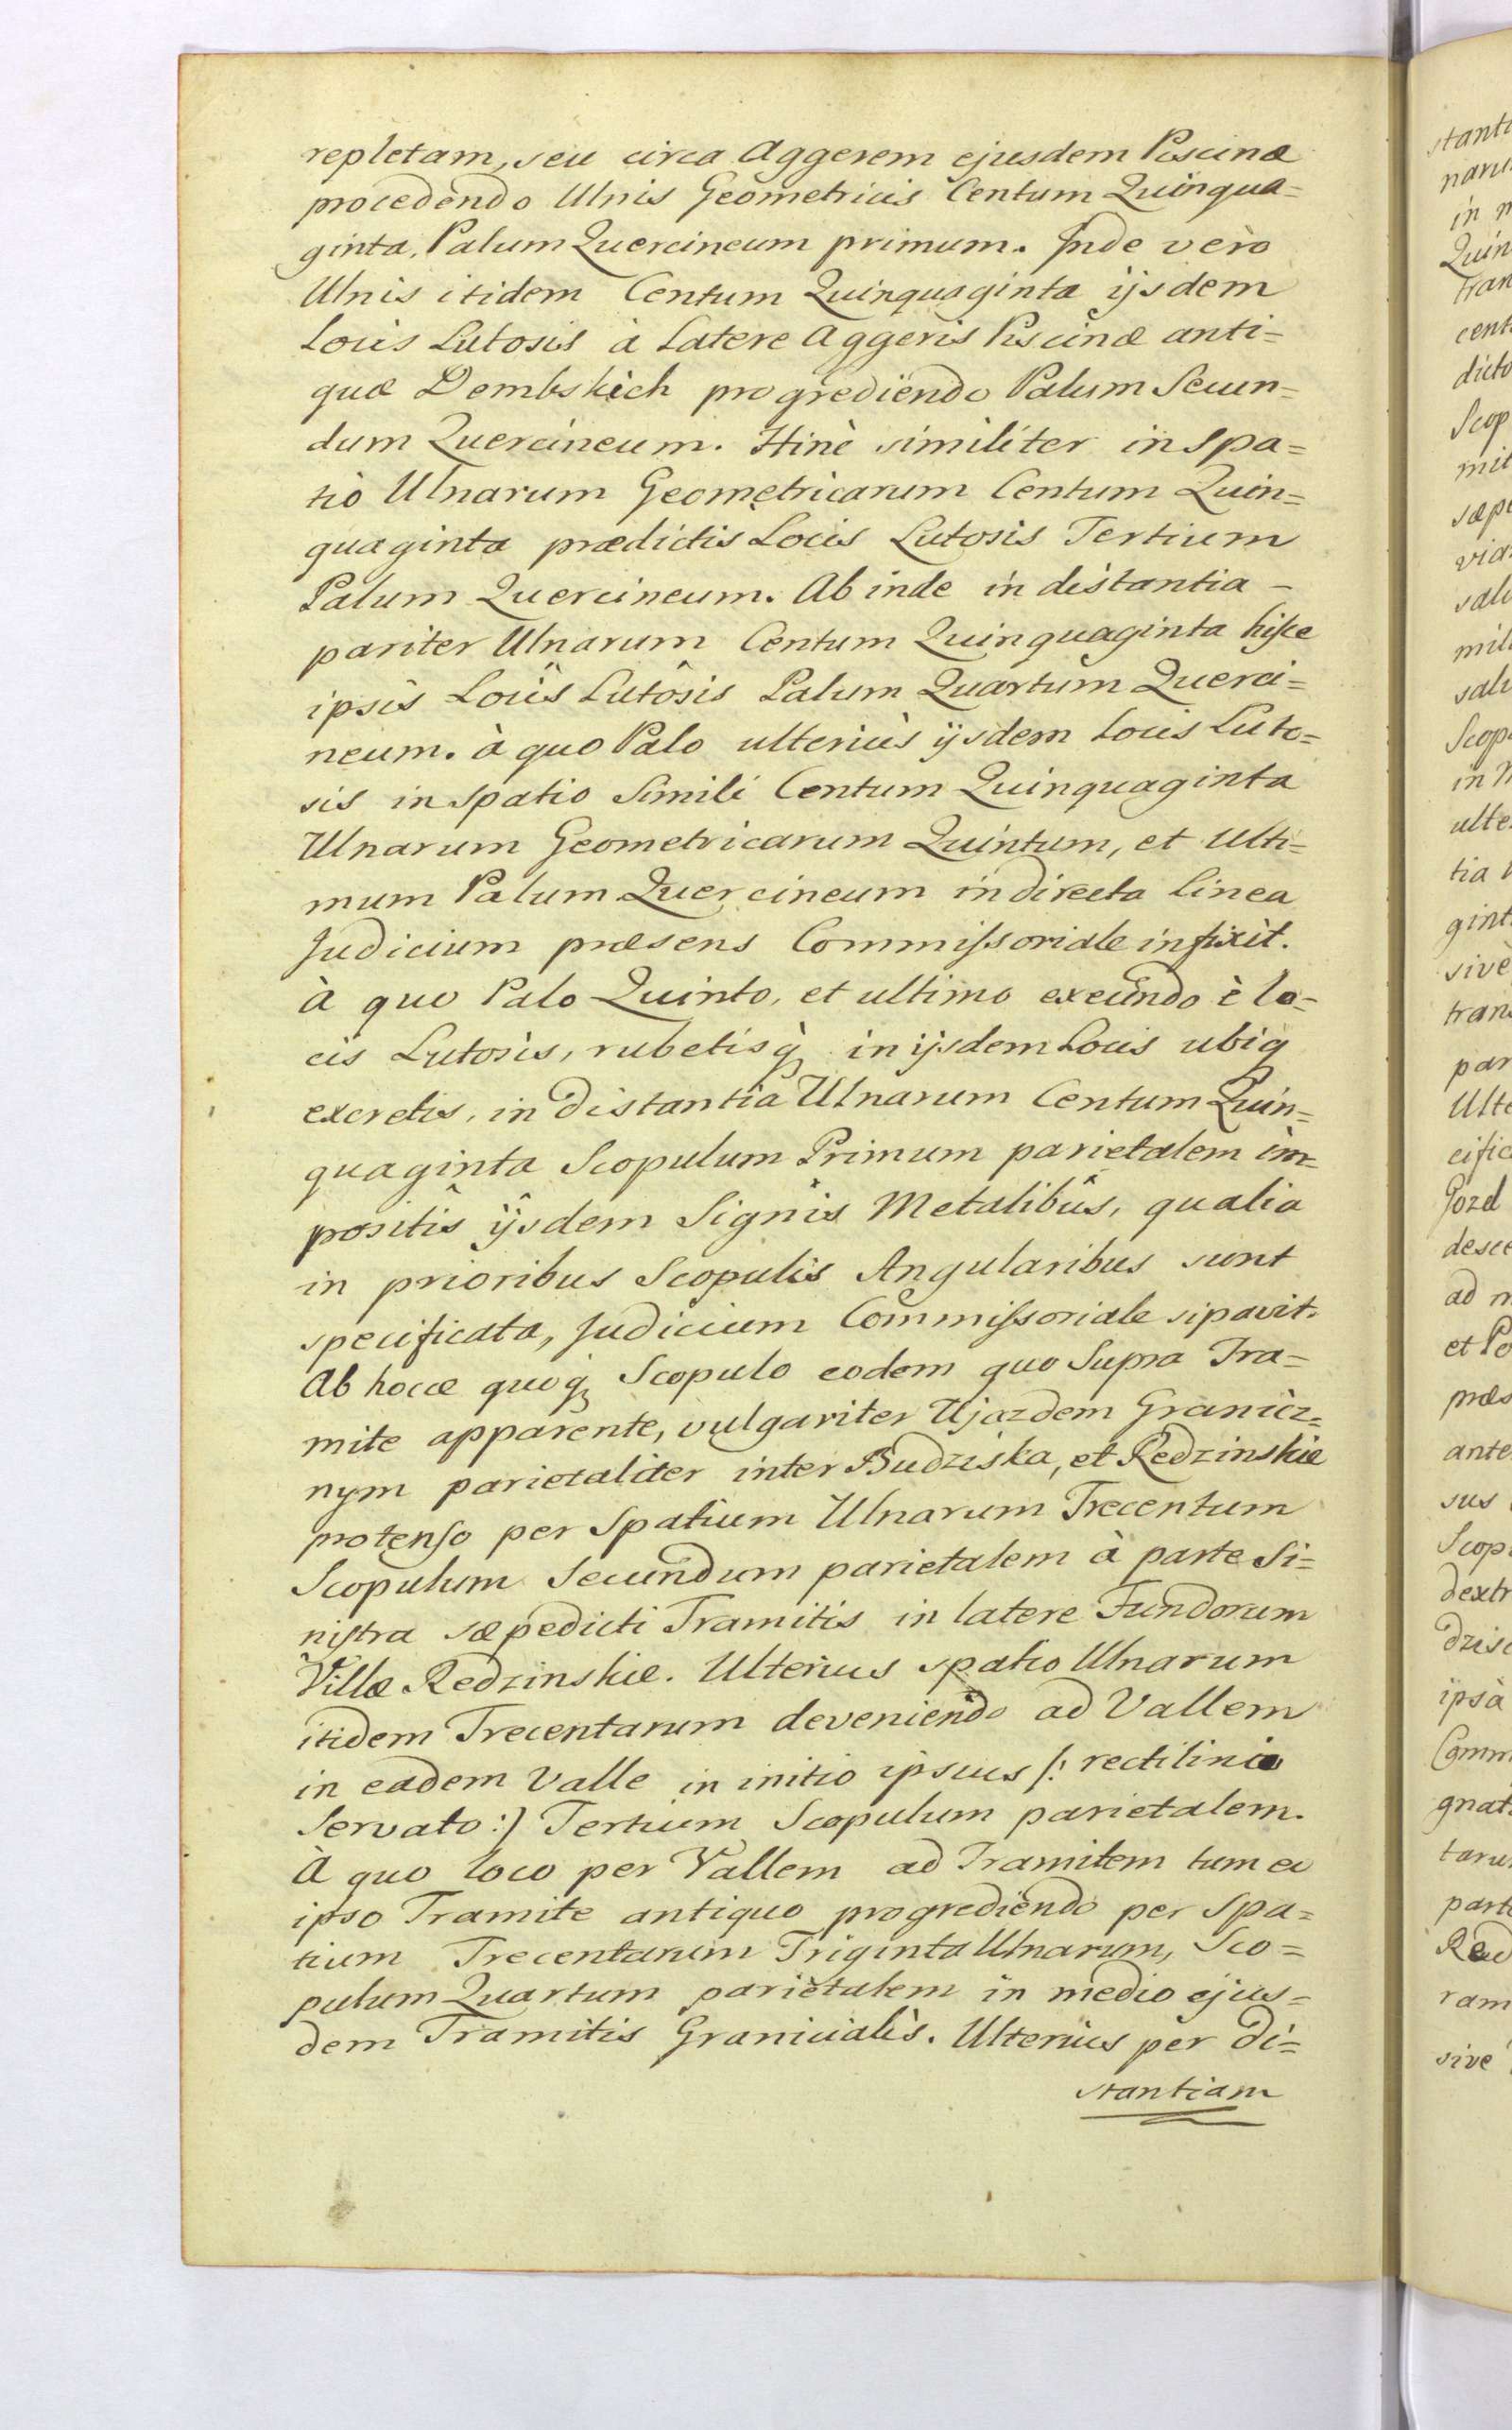 repletam, seu circa Aggerem ejusdem Piscinæ
procedendo Ulnis Geometricis Centum Quinqua=
ginta, Palum Quercineum primum. Inde verò
Ulnis itidem Centum Quinquaginta ijsdem
Locis Lutosis à Latere Aggeris Piscinæ anti=
quæ Dembskich progrediendo Palum Secun=
dum Quercineum. Hinc similiter in Spa=
tio Ulnarum Geometricarum Centum Quin=
quaginta prædictis Locis Lutosis Tertium
Palum Quercineum. Ab inde in distantia –
pariter Ulnarum Centum Quinquaginta hisce
ipsis Locis Lutôsis Palum Quartum Querci=
neum. à quo Palo ulteriùs ijsdem Locis Luto=
sis in Spatio Simili Centum Quinquaginta
Ulnarum Geometricarum Quintum, et Ulti=
mum Palum Quercineum in directa Linea
Judicium præsens Commissoriale infixit.
à quo Palo Quinto, et ultimo exeundo è lo=
cis Lutosis, rubetisq̀ in ijsdem Locis ubiq
excretis, in distantia Ulnarum Centum Quin=
quaginta Scopulum Primum parietalem im=
positîs ijsdem Signis Metalibûs, qualia
in prioribus Scopulis Angularibus sunt
specificata, Judicium Commissoriale sipavit.
Ab hocce quoq̀ Scopulo eodem quo Supra Tra=
mite apparente, vulgariter Ujazdem Granicz=
nym parietaliter inter Budziska, et Redzinskie
protenso per Spatium Ulnarum Trecentum
Scopulum Secundum parietalem à parte Si=
nistra sæpedicti Tramitis in latere Fundorum
Villæ Redzinskie. Ulterius spatio Ulnarum
itidem Trecentarum deveniendo ad Vallem
in eadem Valle in initio ipsius /: rectilinio
Servato :/ Tertium Scopulum parietalem.
À quo loco per Vallem ad Tramitem tum ex
ipso Tramite antiquo progrediendo per Spa=
tium Trecentarum Triginta Ulnarum, Sco=
pulum Quartum parietalem in medio ejus=
dem Tramitis Granicialis. Ulterius per di=
stantiam